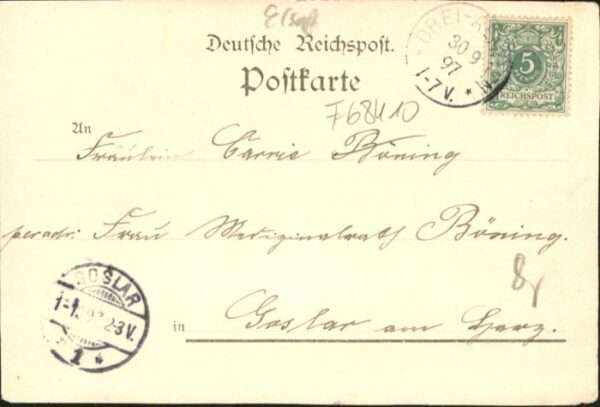 Elsaß
Deutsche Reichspost.
Postkarte
DREI-
30 9
97
1-7 V. *
5
REICHSPOST
F68410
An
Fräulein Carrie Böning
per adr: Frau Medizinalrath Böning.
8,
in Goslar am Harz.
GOSLAR
2-3 V.
1 *